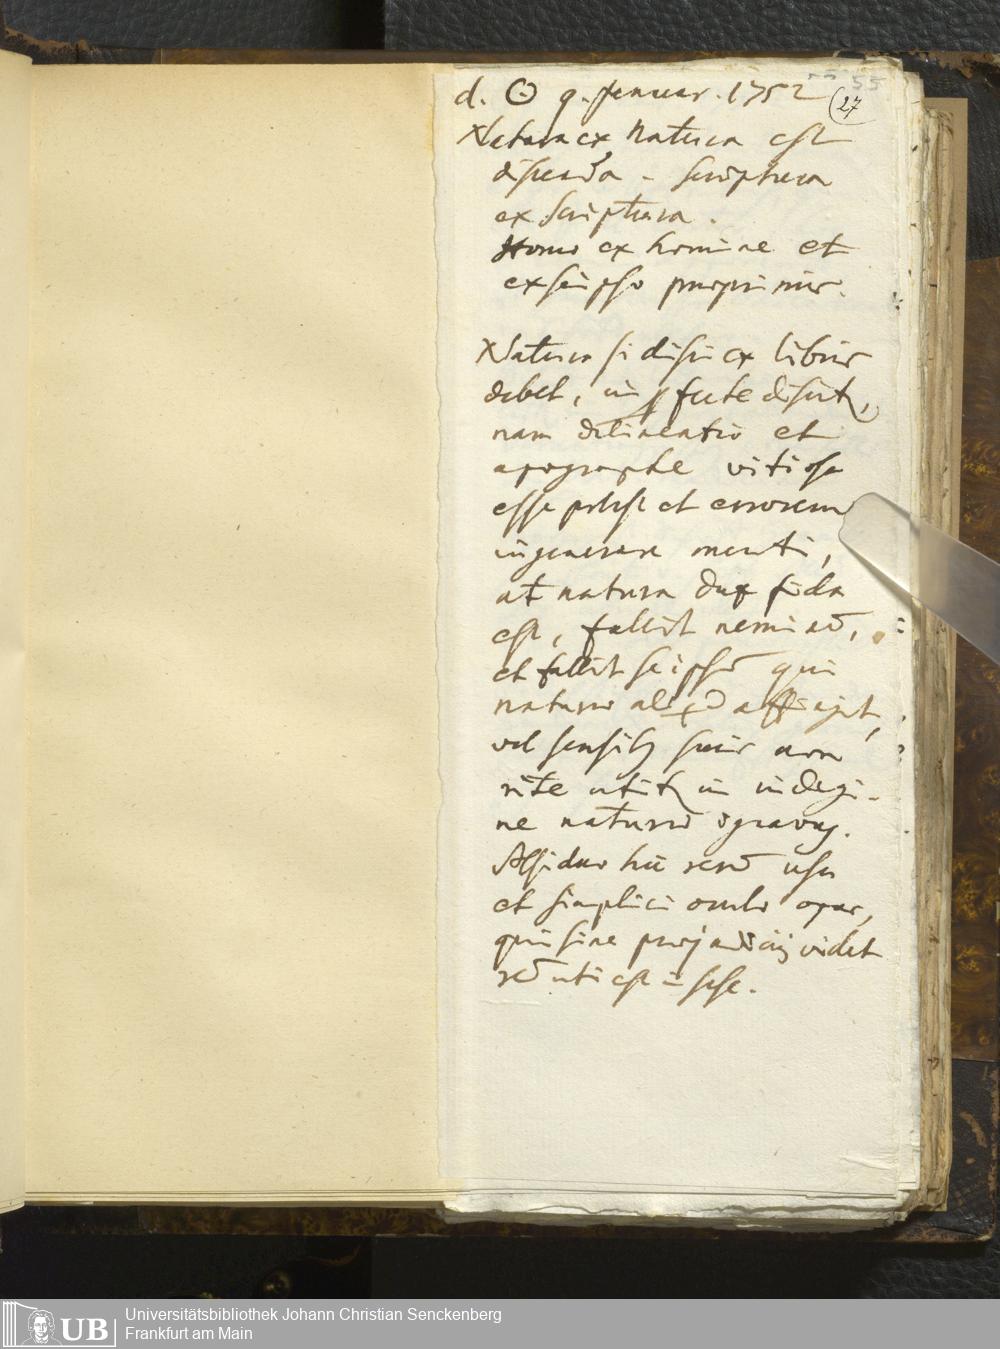 d. ☉ 9. Januar. 1752
55
27
Natura ex Natura est
discenda - scriptura
ex scriptura.
Homo ex homine et
ex seipso
Natura si disci ex libris
debet, imperfecte discitur,
nam delineatio et
apographe vitiosa
esse potest et errorem
ingenerare menti,
at natura dux fida
est, fallit neminē,
et fallit seipsū qui
naturæ aliqd affingit,
vel sensibus suis non
rite utitur in indagi-
ne naturæ
Assiduo hic rerū usu
et simplici oculo opus,
qui sine præjudicijs videt
rē uti est ī sese.
UB
Universitätsbibliothek Johann Christian Senckenberg
Frankfurt am Main